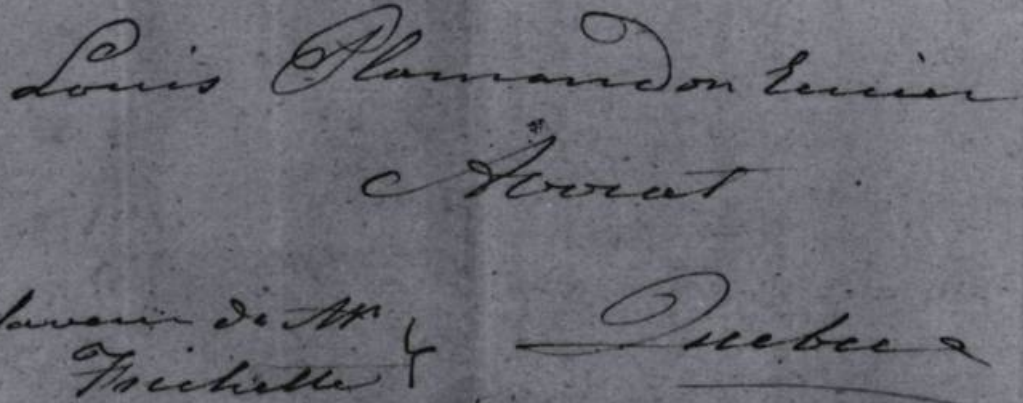 Louis Plamondon Ecuier
Avocat
faveur de Mr
Frichette
Quebec